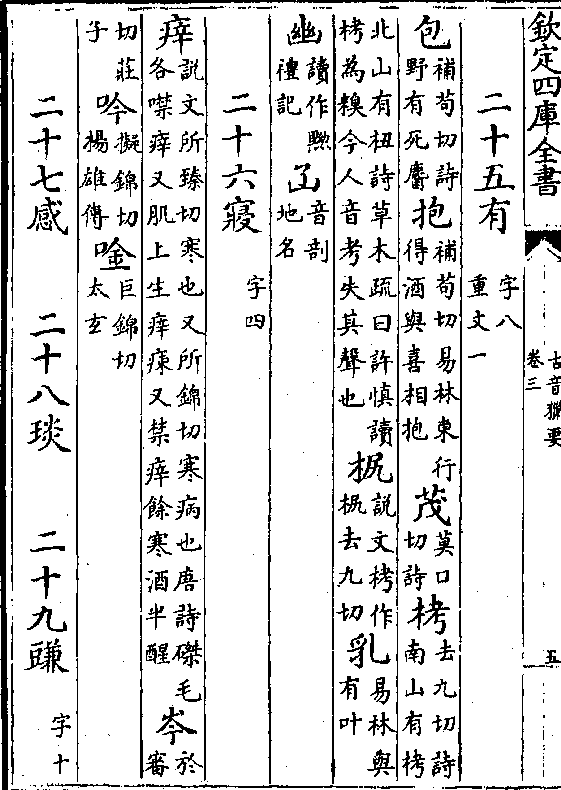 欽定四庫全書
古音獵要
卷三
五
二十五有
字八
重文一
包 補苟切詩
野有死麕
抱 補苟切易林東行
得酒與喜相抱
茂 莫口
切詩
栲 去九切詩
南山有栲
北山有杻詩草木疏曰許慎讀
栲為糗今人音考失其聲也
說文栲作
去九切
乳 易林與
有叶
幽 讀作黝
禮記
音剖
地名
二十六寢
字四
㾕 說文所臻切寒也又所錦切寒病也唐詩磔毛
各噤㾕又肌上生㾕又禁㾕餘寒酒半醒
岑 於
審
切莊
子
吟 擬錦切
楊雄傳
唫 巨錦切
太玄
二十七感
二十八琰
二十九豏
字十